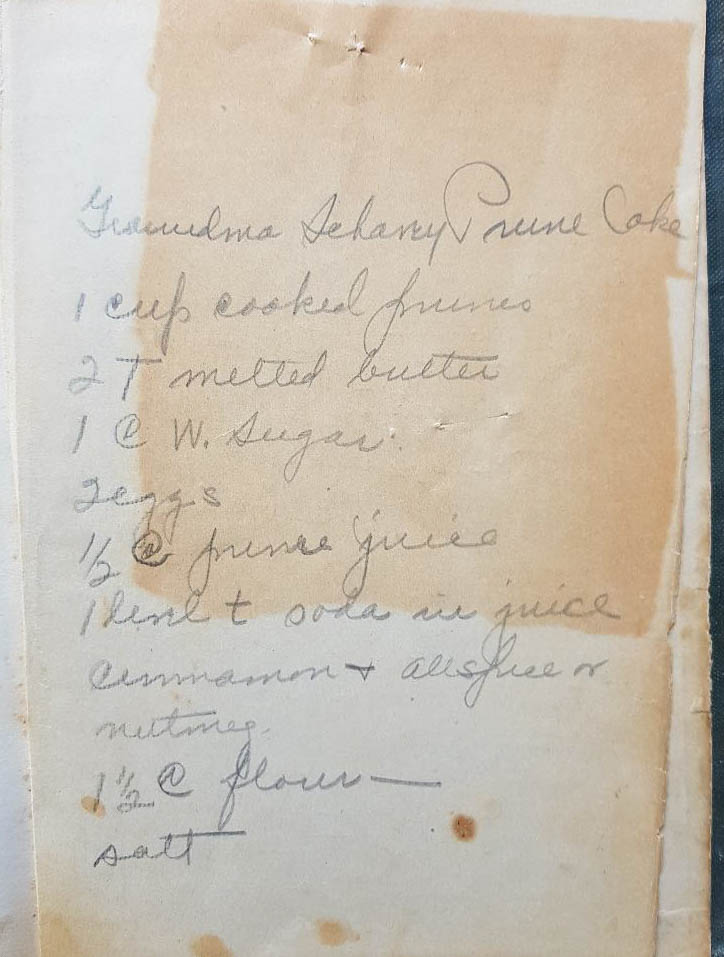 Grandma Schany Prune Cake
1 cup cooked prunes
2 T melted butter
1 C W. Sugar.
2 eggs
1/2 C prune juice
1 level t soda in juice
cinnamon + allspice or
nutmeg.
1 1/2 C flour —
salt